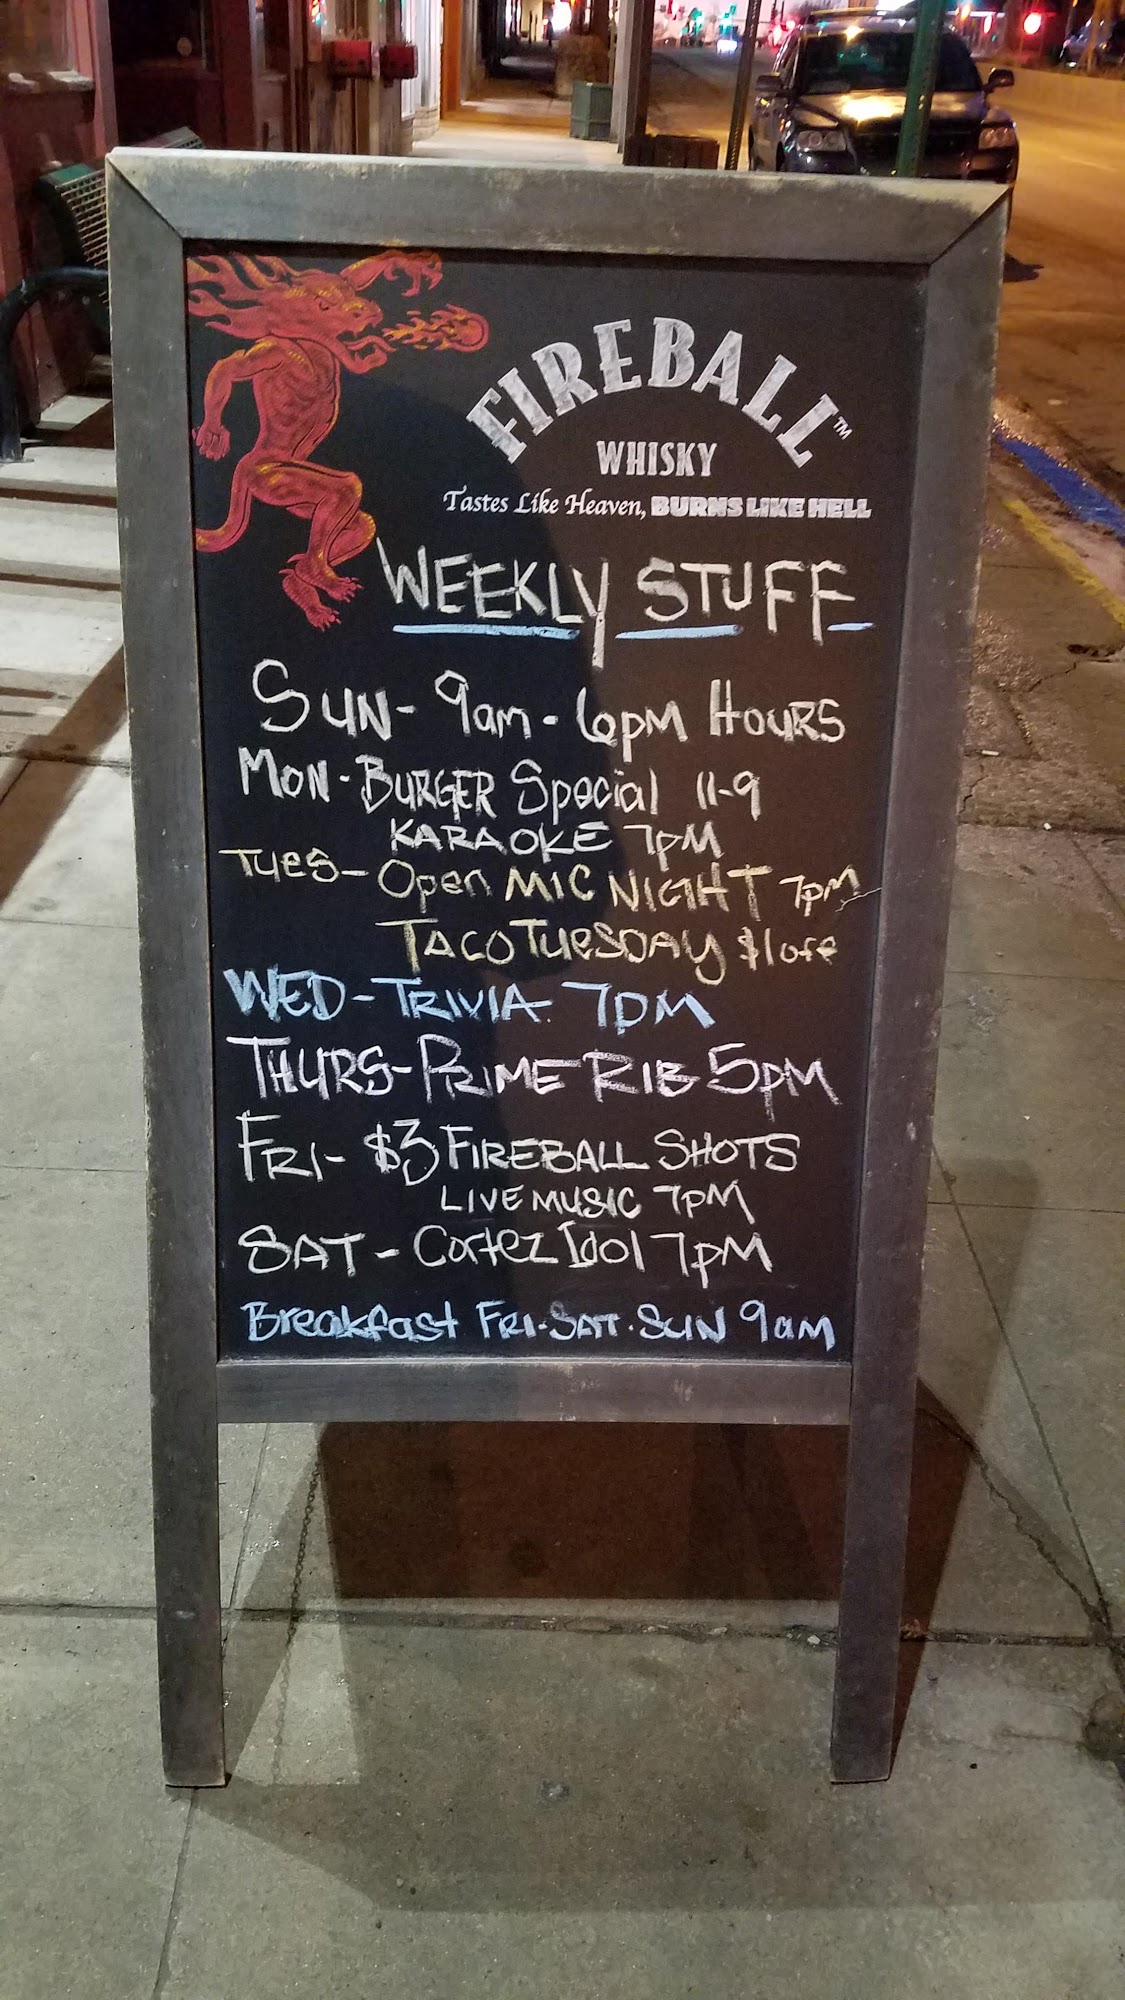 FIREBALL™
WHISKY
Tastes Like Heaven, BURNS LIKE HELL
WEEKLY STUFF
SUN- 9am-6pm HOURS
MON-BURGER Special 11-9
KARAOKE 7pM
TUES- Open MIC NIGHT 7pm
TACO TUESDAY $1 off
WED-TRIVIA 7PM
THURS-PRIME RIB 5pM
FRI- $3 FIREBALL SHOTS
LIVE MUSIC 7pM
SAT - Cortez Idol 7pM
Breakfast FRI-SAT-SUN 9am